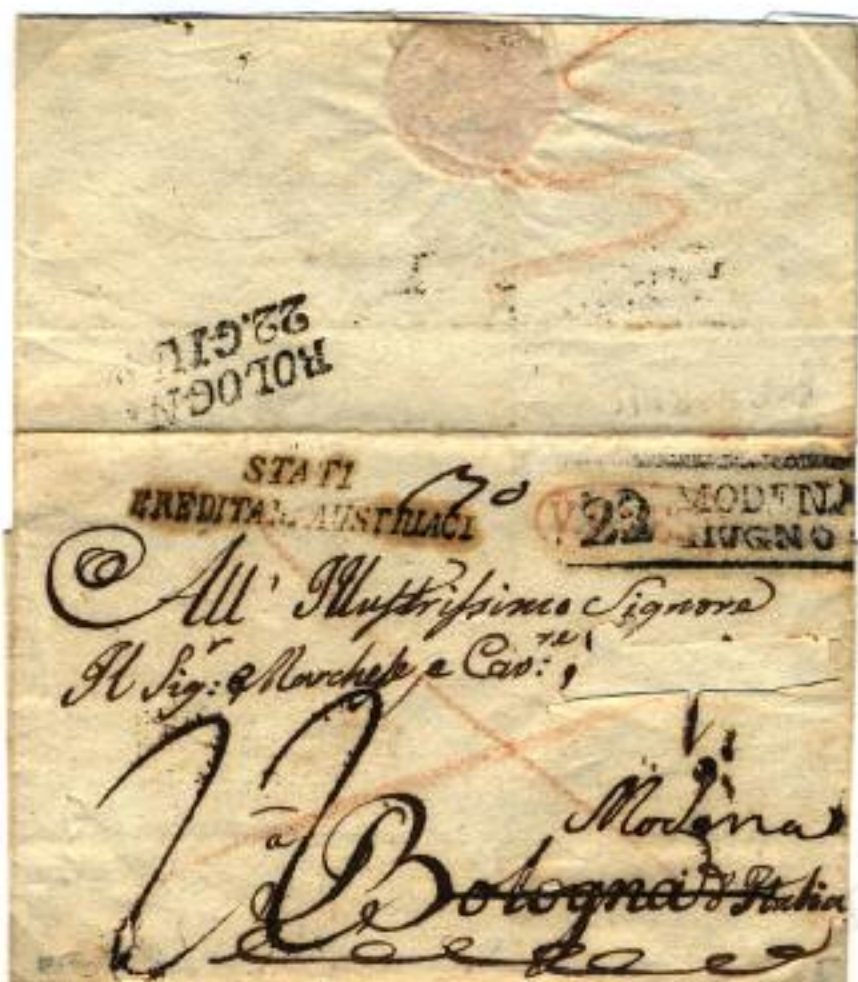 BOLOGNA
22.GIU
STATI
EREDITAR. AUSTRIACI
22 MODENA
GIUGNO
All' Illustrissimo Signore
Il Sig:r Marchese e Cav:re
Modena
a Bologna d'Italia